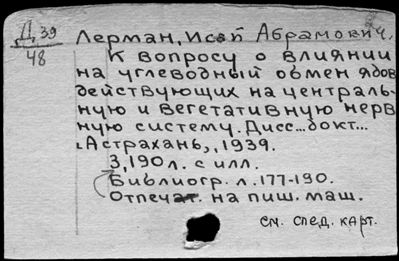 Д 39
48
Лерман, Исай Абрамович.
К вопросу о влиянии
на углеводный обмен ядов
действующих на централь-
ную и вегетативную нерв
ную систему. Дисс... докт...
Астрахань, 1939.
3, 190 л. с илл.
Библиогр. л. 177-190.
Отпечат. на пиш. маш.
см. спец. карт.